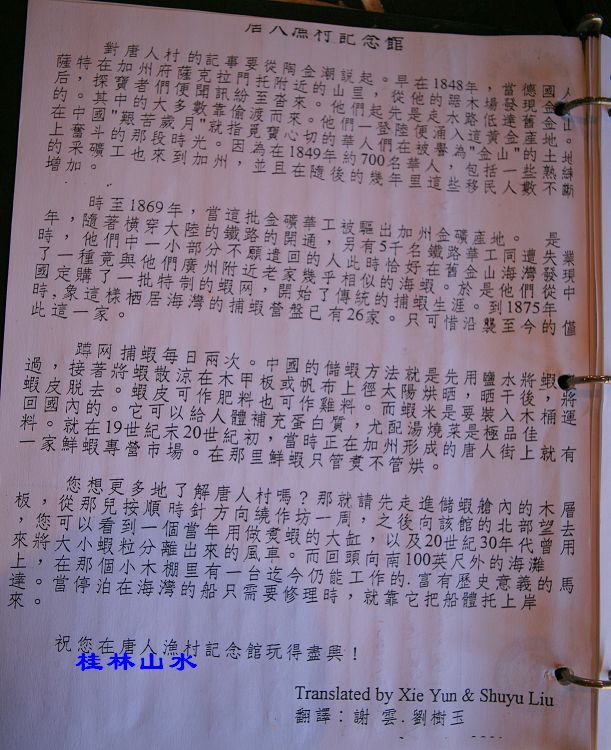 唐人漁村記念館
對唐人村的記事要從陶金潮說起。早在1848年,當德國人
薩特在加州府薩克拉門托附近的山里,從他的踞木場發現金
后,探寶者們便紛至沓來。他們起先是走水路低達舊金山
。其中數就他們一登陸便涌入這黃金產地
在中國"艱大歲月"就華人們在被譽為"金山"的土地
上奮斗的那段時光。因為在1849年約700名華人,包括一些熟
采礦工也來到加州,並且在隨後的幾年里這些移民人數不斷
增加。
時至1869年,當這批金礦華工被驅出加州金礦產地。是
年,隨著橫穿大陸的鐵路的開通,另有5千名鐵路華工同遭失業
時,他們中一小部分不願遣回的人此時恰好在舊金山海灣發現
了一種竟與他們廣州附近老家幾乎相似的海蝦。於是他們從中
國定購了一批特制的蝦网,開始了傳統的捕蝦生涯。到1875年
時,象這樣栖居海灣的捕蝦營盤已有26家。只可惜沿襲至今的僅
此這一家。
蹲网捕蝦每日兩次。中國的儲蝦方法就是先用鹽水將蝦
過,接著將蝦散涼在木甲板或帆布上徑太陽烘晒,晒干后,將
蝦皮脫去。蝦皮可作肥料也可作雞料。而蝦米是要裝入木桶運
回國內的。它可以給人體補充蛋白質,尤配湯燒菜是極品佳
料。就在19世紀末20世紀初,當時正在加州形成的唐人街上就有
一家鮮蝦專營市場。在那里鮮蝦只管煮不管烘。
您想更多地了解唐人村嗎?那就請先走進儲蝦艙內的木層
板,從那兒按順時針方向繞作坊一周,之後向該館的北部望去
,您可以看到一個當年用做煮蝦的大缸,以及20世紀30年代曾用
來將大小蝦粒分離出來的風車。而回頭向南100英尺外的海灘
上。在那個小木棚里有一台迄今仍能工作的.富有歷史意義的馬
達。當停泊在海灣的船只需要修理時,就靠它把船體托上岸
來。
祝您在唐人漁村記念館玩得盡興!
桂林山水
Translated by Xie Yun & Shuyu Liu
翻譯:謝 雲.劉樹玉